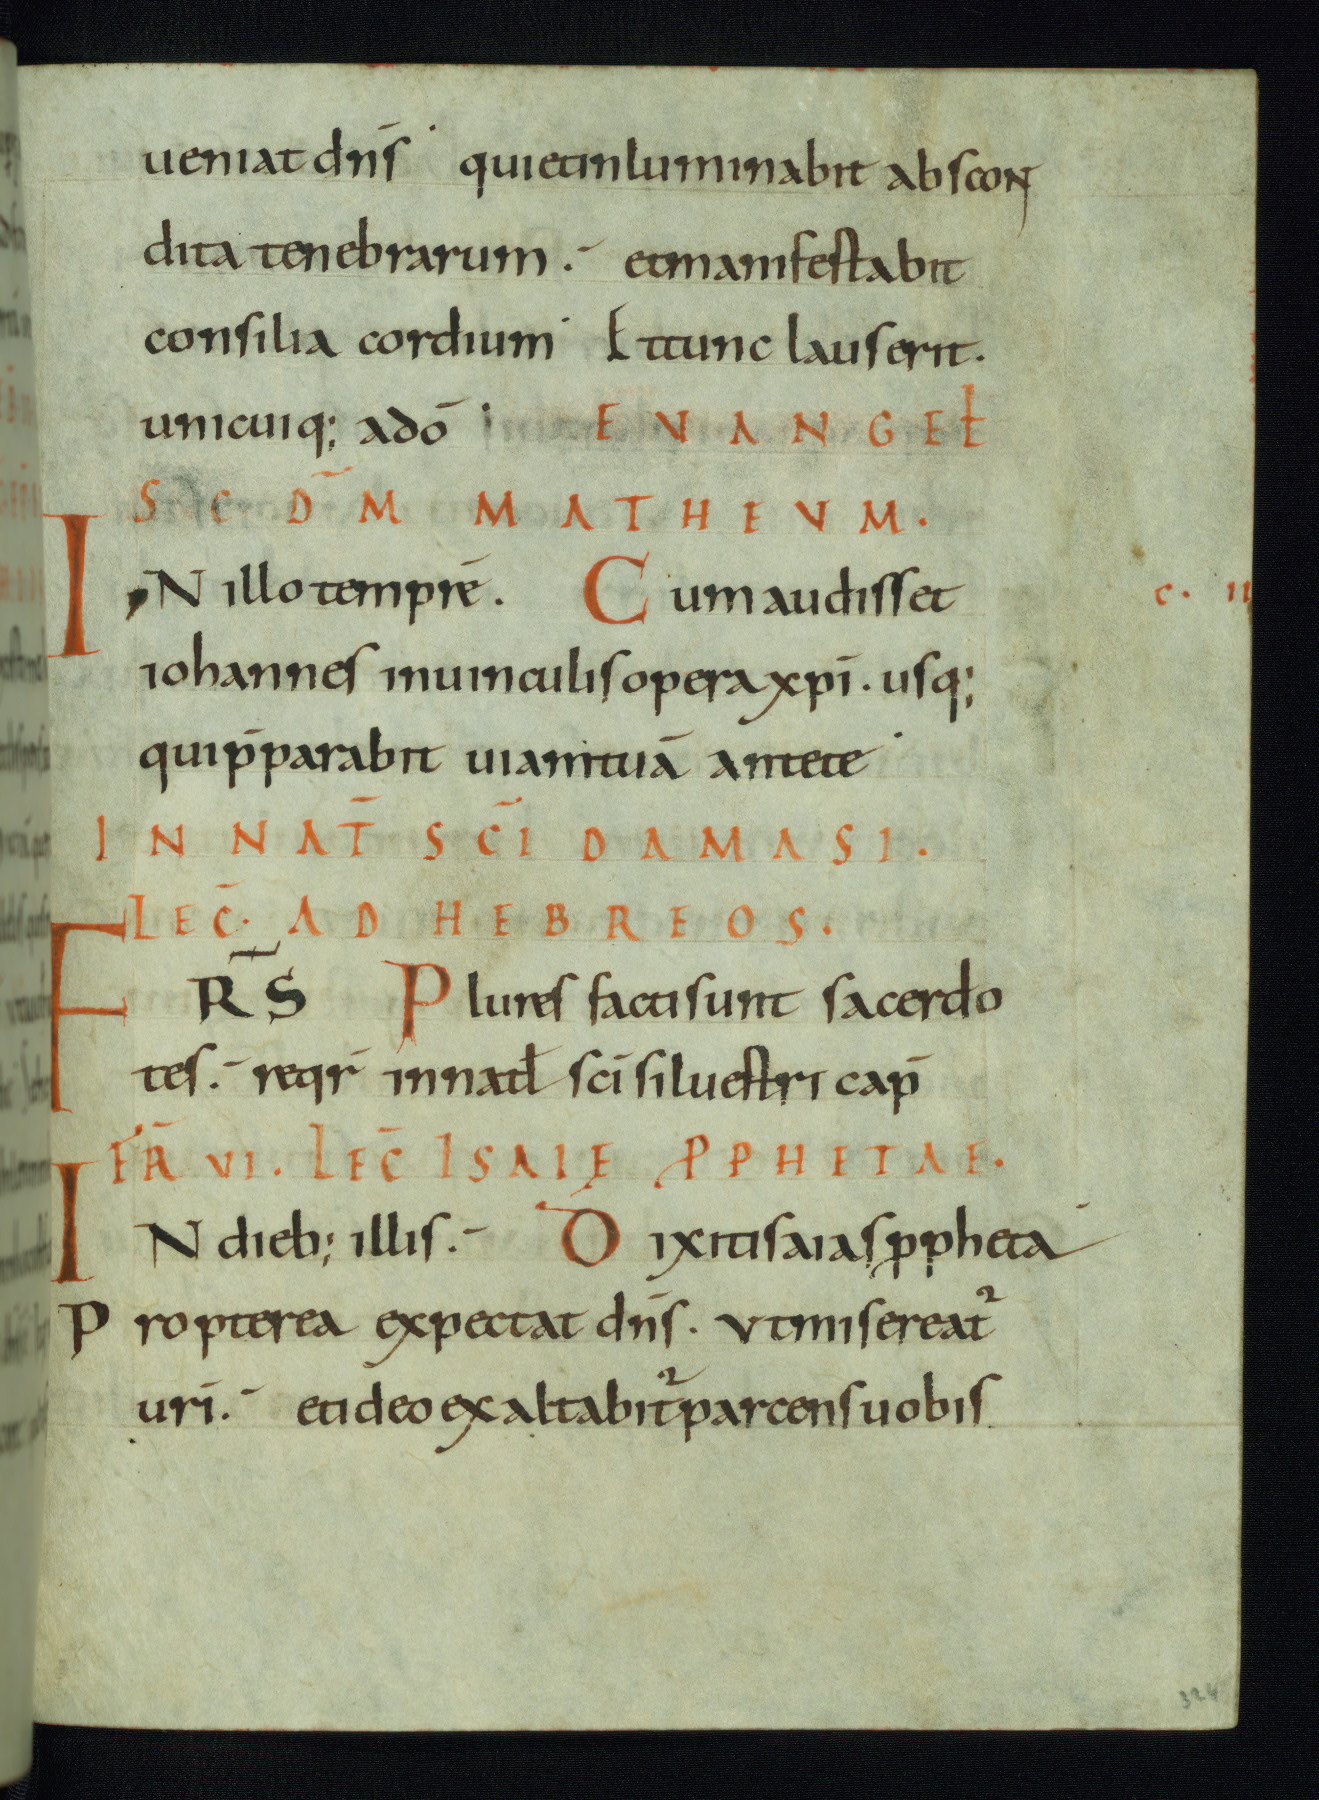 ueniat dn̄s quietinluminabit abscon
dita tenebrarum. etmanifestabit
consilia cordium Ettunc lauserit.
unicuiq; adō EVANGEŁ
SC DM̄ MATHEVM.
IN illo temprē. Cumaudisset c. II
iohannes inuinculisoperaxpī. usq;
quip̄parabit uiamtuā antete
IN NAT̄ SC̄I DAMASI.
LEC̄. AD HEBREOS.
FR̄S Plures factisunt sacerdo
tes. reqr̄ innatł sc̄i siluestri cap̄
FR̄ VI. LEC̄ ISAIĘ ꝓPHETAE.
IN dieb; illis. Dixitisaiasꝓpheta
Propterea expectat dn̄s. Vtmisereat᷑
uri̅. etideoexaltabit᷑parcensuobis
324